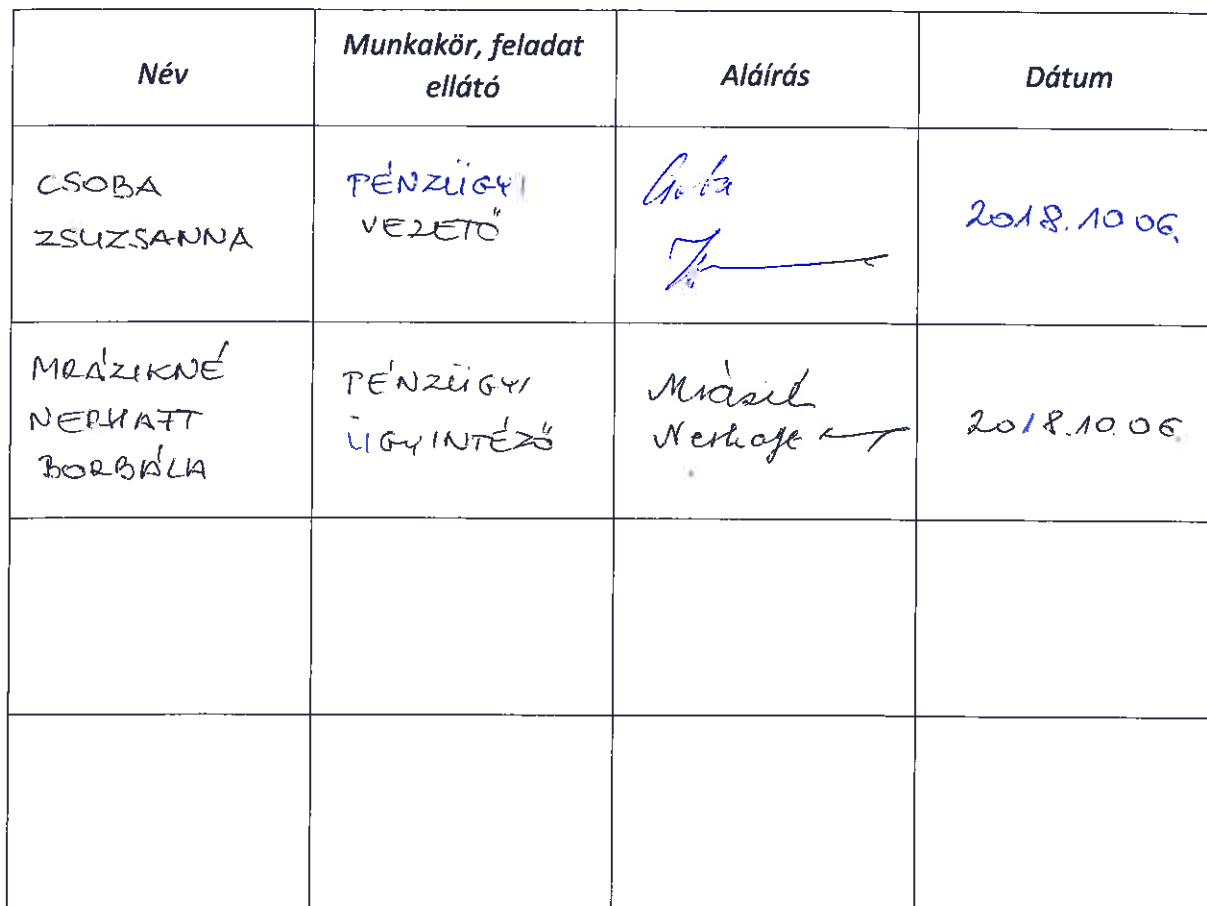 Név
Munkakör, feladat
ellátó
Aláírás
Dátum
CSOBA
ZSUZSANNA
PÉNZÜGYI
VEZETŐ
2018.10.06.
MRÁZIKNÉ
NERHAFT
BORBÁLA
PÉNZÜGYI
ÜGYINTÉZŐ
2018.10.06.